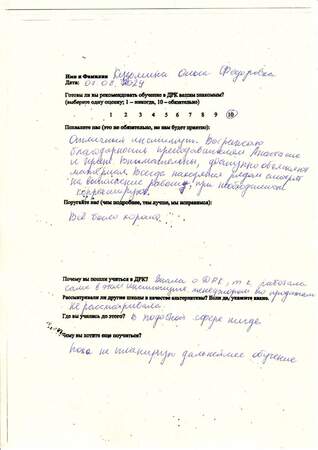 Имя и Фамилия Кузьмина Ольга Федоровна
Дата: 01.08.2024
Готовы ли вы рекомендовать обучение в ДРК вашим знакомым?
(выберите одну оценку; 1 – никогда, 10 – обязательно)
1 2 3 4 5 6 7 8 9 10
Похвалите нас (это не обязательно, но нам будет приятно):
Отличный институт. Выражаю
благодарность преподавателям Анастасие
и Ирине. Внимательны, доступно объясняют
материал. Всегда находятся рядом смотрят
на выполнение работы, при необходимости
корректируют.
Поругайте нас (чем подробнее, тем лучше, мы исправимся):
Всё было хорошо.
Почему вы пошли учиться в ДРК? Знала о ДРК, т.к. работала
сама в этом институте менеджером по продажам
Рассматривали ли другие школы в качестве альтернативы? Если да, укажите какие.
не рассматривала
Где вы учились до этого? в подобной сфере нигде.
Чему вы хотите еще поучиться?
Пока не планирую дальнейшее обучение